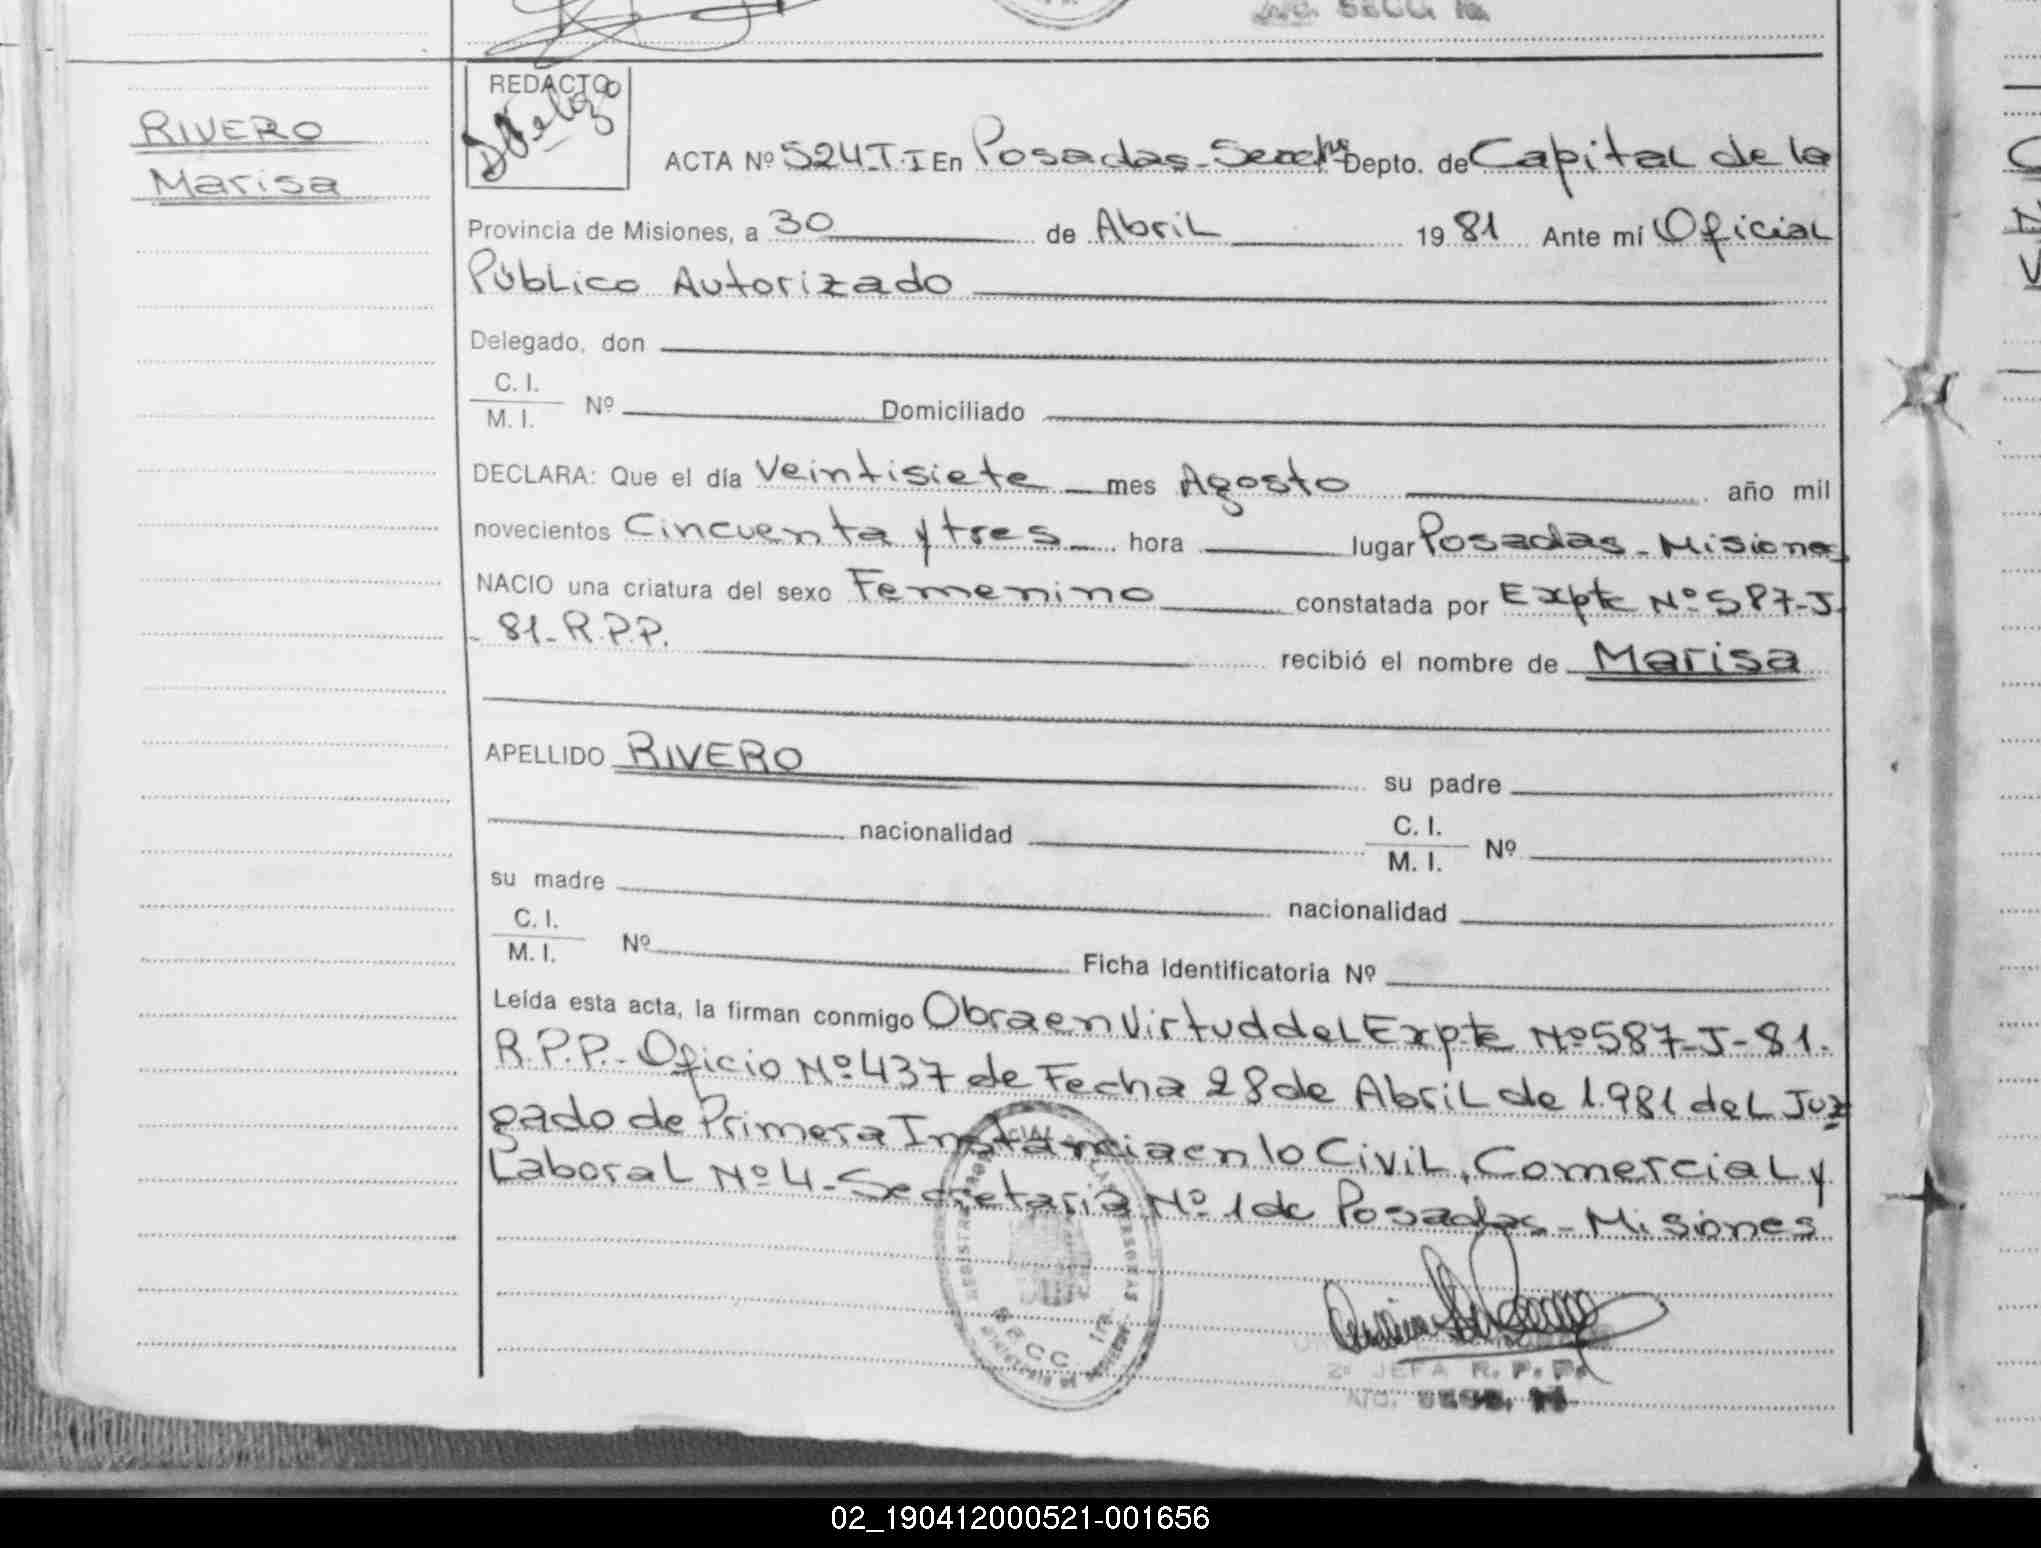 RIVERO
Marisa
REDACTO
ACTA Nº 524 T.I En Posadas- Depto. de Capital de la
Provincia de Misiones, a 30 de Abril 1981 Ante mí Oficial
Público Autorizado
Delegado, don
C. I.
M. I. Nº Domiciliado
DECLARA: Que el día Veintisiete mes Agosto año mil
novecientos Cincuenta y tres hora lugar Posadas-Misiones
NACIO una criatura del sexo Femenino constatada por Expte Nº 587-J-
-81-R.P.P. recibió el nombre de Marisa
APELLIDO RIVERO su padre
nacionalidad C. I. M. I. Nº
su madre nacionalidad
C. I.
M. I. Nº Ficha Identificatoria Nº
Leída esta acta, la firman conmigo Obra en Virtud del Expte Nº 587-J-81.
R.P.P.- Oficio Nº 437 de Fecha 28 de Abril de 1.981 del Juz
gado de Primera Instancia en lo Civil, Comercial y
Laboral Nº 4- Secretaria Nº 1 de Posadas-Misiones
2º JEFA R. P. P.
02_190412000521-001656